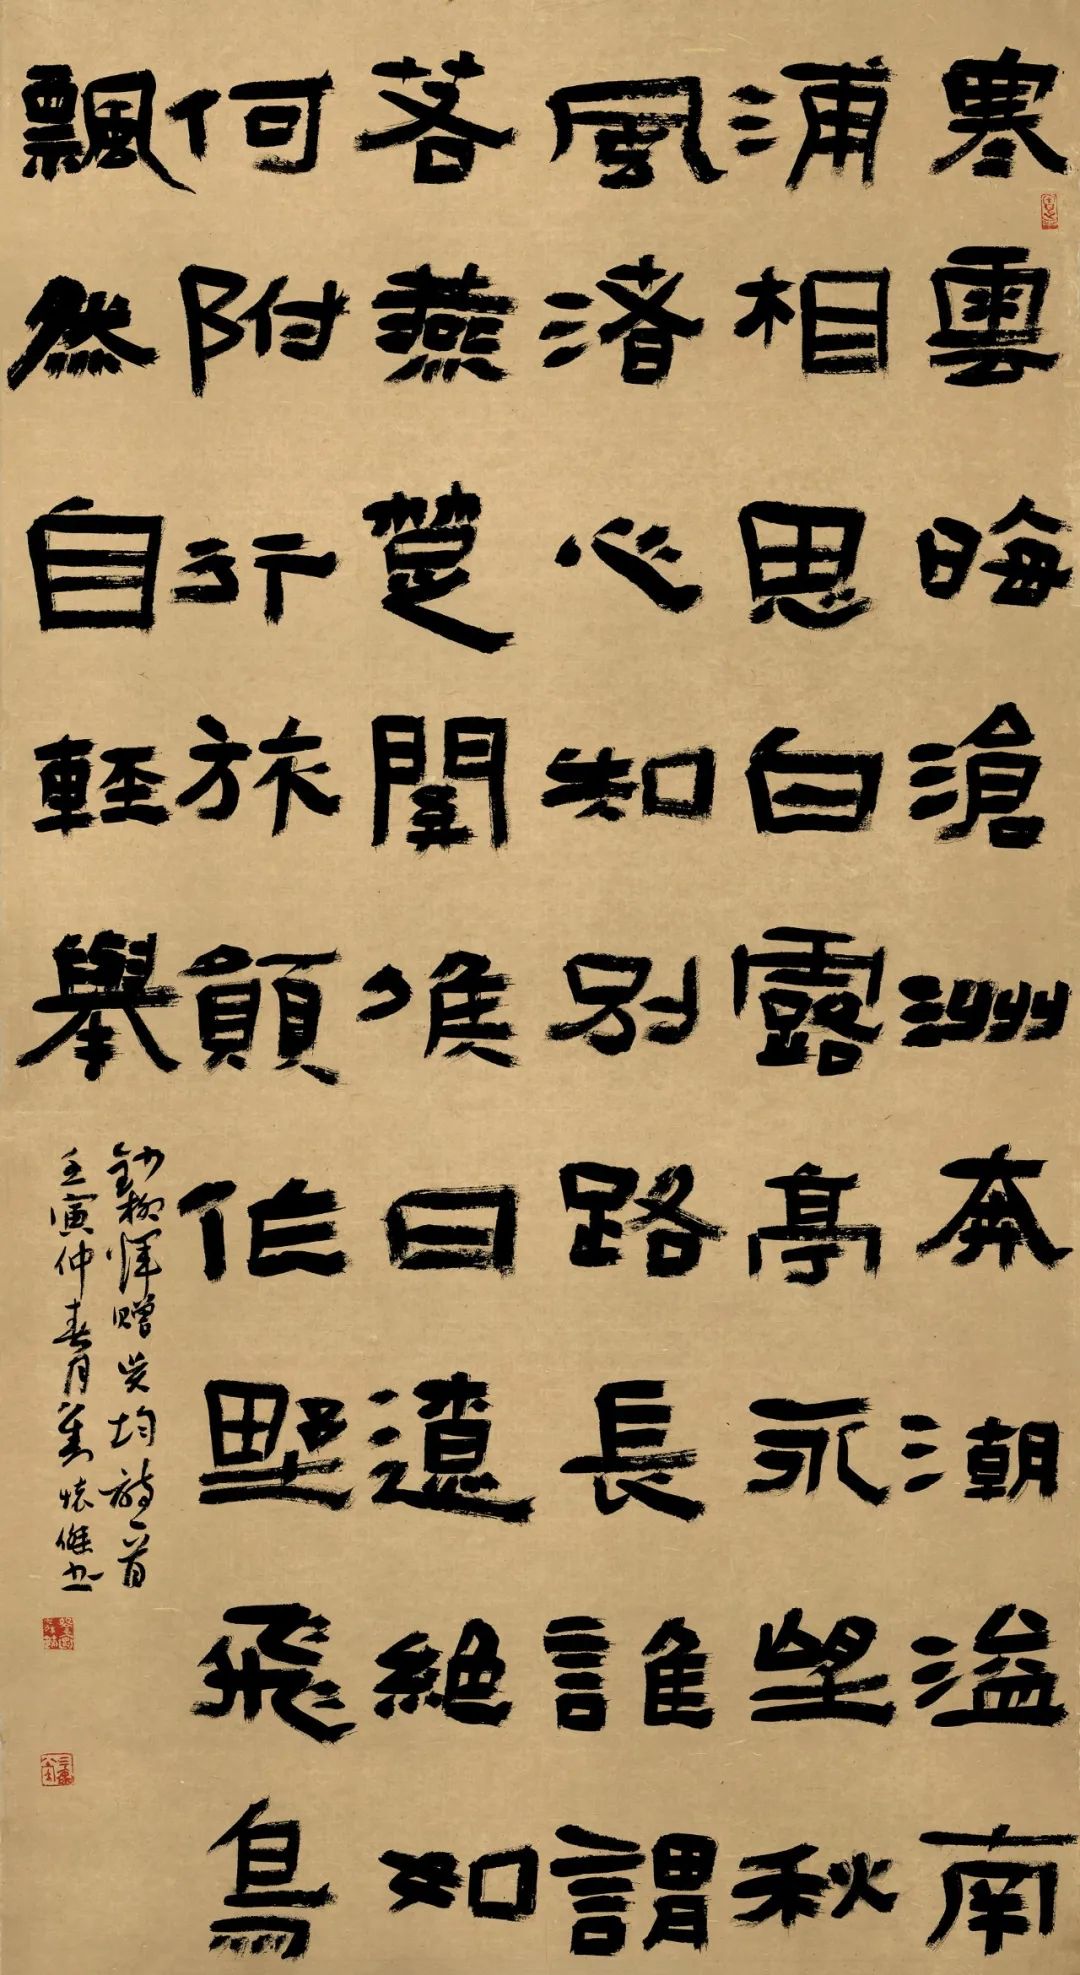 寒雲晦滄洲奔潮溢南
浦相思白露亭永望秋
風渚心知別路長誰謂
若燕楚關候日遼絕如
何附行旅願作野飛鳥
飄然自輕舉
鈔柳惲贈吳均詩一首
壬寅仲春月懷傑書